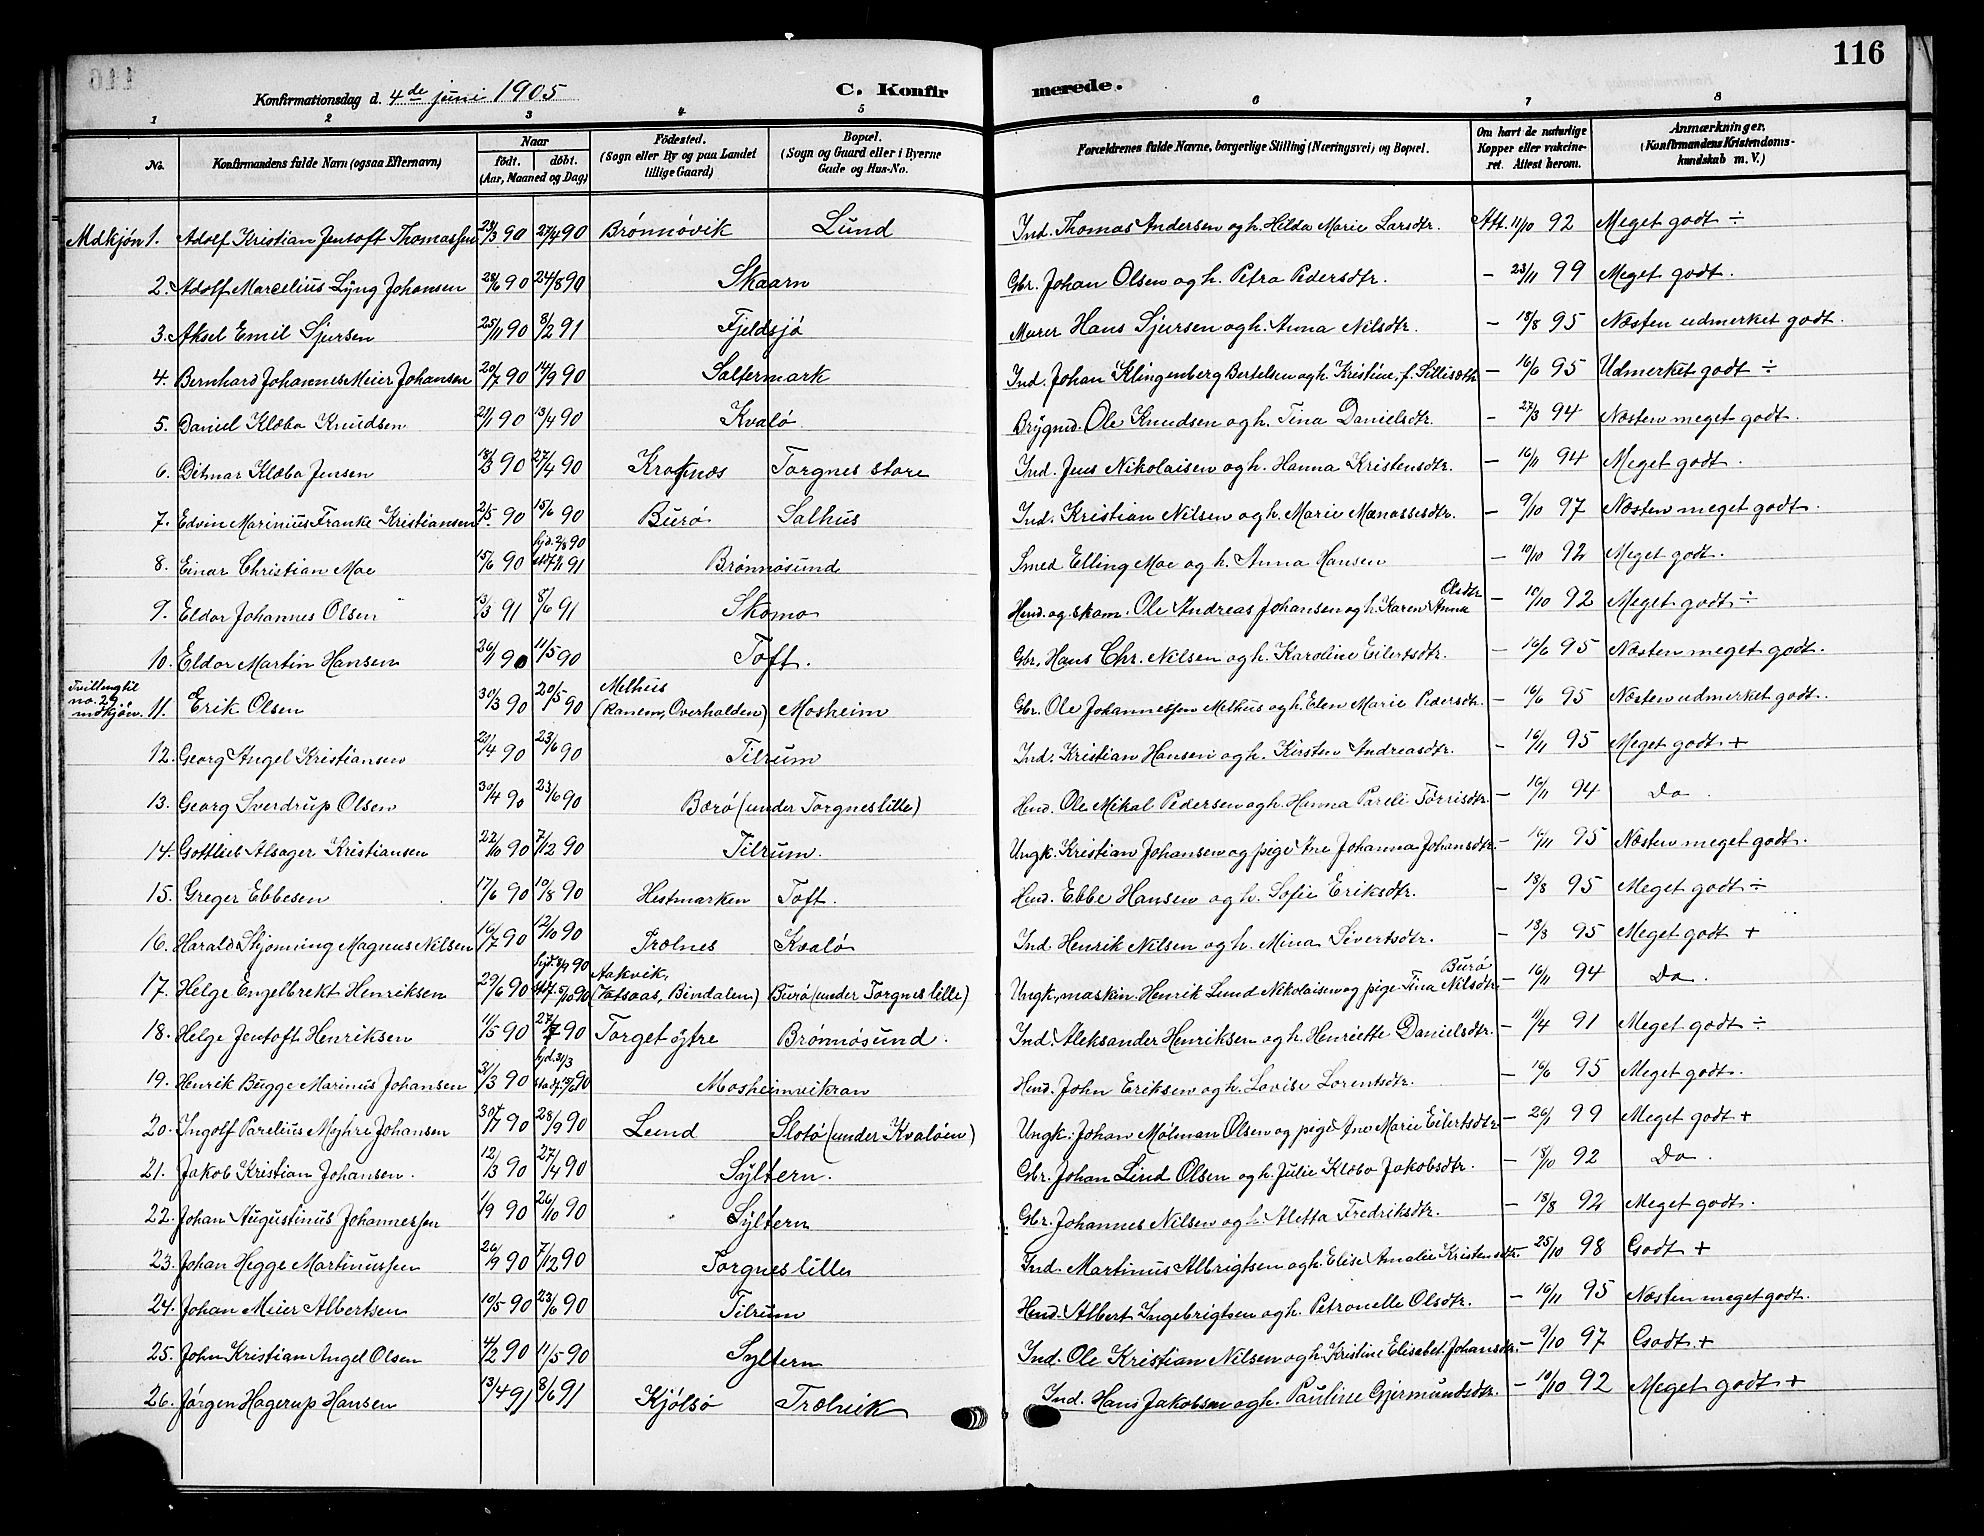 116
Konfirmationsdag d. 4de juni 1905 C. Konfirmerede.
1 2 3 4 5 6 7 8
No. Konfirmandens fulde Navn (ogsaa Efternavn) Naar født. døbt. (Aar, Maaned og Dag) Fødested. (Sogn eller By og paa Landet tillige Gaard) Bopæl. (Sogn og Gaard eller i Byerne Gade og Hus-No. Forældrenes fulde Navne, borgerlige Stilling (Næringsvei) og Bopæl. Om havt de naturlige Kopper eller vakcineret. Attest herom. Anmærkninger. (Konfirmandens Kristendomskundskab m. V.)
Mdkjøn 1. Adolf Kristian Jentoft Thomassen 23/3 90 27/4 90 Brønnøvik Lund Ind. Thomas Andersen og h. Hilda Marie Larsdtr. Att. 11/10 92 Meget godt ÷
2. Adolf Marcelius Lyng Johansen 28/6 90 24/8 90 Skaarn Gbr. Johan Olsen og h. Petra Pedersdtr. – 23/11 99 Meget godt.
3. Aksel Emil Sjursen 25/11 90 8/2 91 Fjeldsjø Murer Hans Sjursen og h. Anna Nilsdtr. – 18/8 95 Næsten udmerket godt.
4. Bernhard Johannes Meier Johansen 20/7 90 14/9 90 Saltermark Ind. Johan Klingenberg Bertelsen og h. Kristine, f. – 16/6 95 Udmerket godt ÷
5. Daniel Klæbo Knudsen 21/1 90 13/4 90 Kvalø Ole Knudsen og h. Tina Danielsdtr. – 27/3 94 Næsten meget godt.
6. Ditmar Klæbo Jensen 18/3 90 27/4 90 Kroknæs Torgnes store Ind. Jens Nikolaisen og h. Hanna Kristensdtr. – 16/11 94 Meget godt.
7. Edvin Marinius Franke Kristiansen 2/5 90 15/6 90 Burø Salhus Ind. Kristian Nilsen og h. Marie Manassesdtr. – 9/10 97 Næsten meget godt.
8. Einar Christian Moe 15/6 90 hjd. 2/8 90 91 Brønnøsund Smed Elling Moe og h. Anna Hansen – 10/10 92 Meget godt.
9. Eldor Johannes Olsen 13/3 91 8/6 91 Skomo Hmd. og skom. Ole Andreas Johansen og h. Karen Anna Olsdtr. – 10/10 92 Meget godt ÷
10. Eldor Martin Hansen 26/1 90 11/5 90 Toft. Gbr. Hans Chr. Nilsen og h. Karoline Eilertsdtr. – 16/6 95 Næsten meget godt.
Tvilling til no. 29 mdkjøn. 11. Erik Olsen 30/3 90 20/5 90 Melhus (Ranem, Overhalden) Mosheim Gbr. Ole Johannessen Melhus og h. Elen Marie Pedersdtr. – 16/6 95 Næsten udmerket godt.
12. Georg Angel Kristiansen 21/4 90 23/6 90 Tilrum Ind. Kristian Hansen og h. Kirsten Andreasdtr. – 16/11 95 Meget godt +
13. Georg Sverdrup Olsen 30/4 90 23/6 90 Burø (under Torgnes lille) Hmd. Ole Mikal Pedersen og h. Hanna Pareli Torrisdtr. – 16/11 94 Do.
14. Gottlieb Alsager Kristiansen 22/10 90 7/12 90 Tilrum. Ungk. Kristian Johansen og pige Ane Johanna Johansdtr. – 16/11 95 Næsten meget godt.
15. Greger Ebbesen 17/6 90 10/8 90 Hestmarken Toft. Hmd. Ebbe Hansen og h. Sofie Eriksdtr. – 18/8 95 Meget godt ÷
16. Harald Skjønning Magnus Nilsen 16/7 90 12/10 90 Trælnes Kvalø Ind. Henrik Nilsen og h. Mina Sivertsdtr. – 18/8 95 Meget godt +
17. Helge Engelbrekt Henriksen 29/6 90 hjd. 8/7 90 stdf. 5/10 90 Aakvik, (Vatsaas, Bindalen) Burø (under Torgnes lille) Ungk., maskin. Henrik Lund Nikolaisen og pige Tina Nilsdtr. Burø – 16/11 94 Do.
18. Helge Jentoft Henriksen 11/5 90 27/7 90 Torget øjtre Brønnøsund. Ind. Aleksander Henriksen og h. Henriette Danielsdtr. – 11/4 91 Meget godt ÷
19. Henrik Bugge Marinus Johansen 31/3 90 hjd. 31/3 90 Mosheimvikran Hmd. John Eriksen og h. Lovise Lorentsdtr. – 16/6 95 Meget godt.
20. Ingolf Parelius Myhre Johansen 30/7 90 28/9 90 Lund Slotø (under Kvaløen) Ungk. Johan Mølman Olsen og pige Ane Marie Eilertsdtr. – 26/1 99 Meget godt +
21. Jakob Kristian Johansen. 12/3 90 27/4 90 Syltern. Gbr. Johan Lind Olsen og h. Julie Klæbo Jakobsdtr. – 18/10 92 Do.
22. Johan Augustinus Johannessen 1/9 90 26/10 90 Syltern Gbr. Johannes Nilsen og h. Aletta Fredriksdtr. – 18/8 92 Meget godt.
23. Johan Hegge Martinussen 26/9 90 7/12 90 Torgnes lille Ind. Martinus Albrigtsen og h. Elise Amalie Kristensdtr. – 25/10 98 Godt +
24. Johan Meier Albertsen 10/5 90 23/6 90 Tilrum Hmd. Albert Ingebrigtsen og h. Petronelle Olsdtr. – 16/11 95 Næsten meget godt.
25. John Kristian Angel Olsen 4/2 90 11/5 90 Syltern Ind. Ole Kristian Nilsen og h. Kristine Elisabet Johansdtr. – 9/10 97 Godt +
26. Jørgen Hagerup Hansen 13/4 91 8/6 91 Kjølsø Trælvik Ind. Hans Jakobsen og h. Pauline Gjermundsdtr. – 10/10 92 Meget godt +